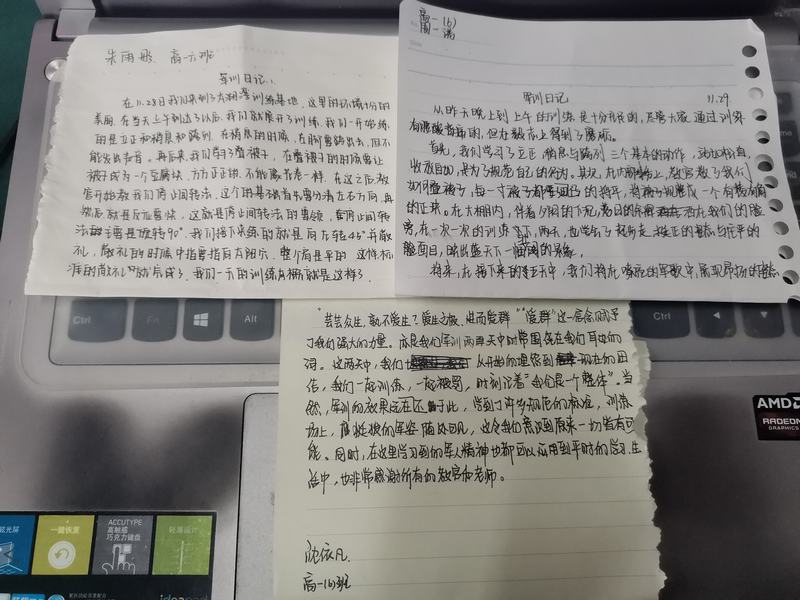 朱雨彤 高一六班
军训日记
在11.28日我们来到了太湖湾训练基地,这里的环境十分的
美丽,在当天上午到达了以后,我们就展开了训练,我们一开始练
的是立正和稍息和跨列,在稍息的时候,左脚要踢出去,但不
能发出声音。再后来,我们学习了叠被子,在叠被子的时候需要让
被子成为一个豆腐块,方方正正的,不能像花卷一样,在这之后,教
官开始教我们停止间转法,这个的基础首先要分清左右方向,再
然后就是反应要快,这就是停止间转法的要领,
法 要是旋转90°,我们接下来练的就是向右转45°并敬
礼,敬礼的时候中指要指向太阳穴,整个肩是平的,这样标
准的敬礼 就完成了,我们一天的训练 就是这样了。
高一(6)
军训日记 11.29.
从昨天晚上到上午的训练是十分艰辛的,尽管大家通过训练
有 ,但 得到了磨砺。
首先,我们学习了立正,稍息与跨列三个基本的动作,动作标准,
收放自如,是为了规范自己的行为。其次,在内务 上,教官教了我们
如何叠被子,每一寸被子都要 的 平,将被子规整成一个有棱有角
的正方。在太湖内,伴着夕阳的下沉,落日的余晖 洒在我们的脸
旁,在一次一次的训练下,两天,也学会了 正的 态与庄严的
脸面目,
将来,在接下来的 天中,我们将在嘹亮的军歌中,展现昂扬的
“芸芸众生,孰不爱生?爱生之极,进而爱群”“爱群”这一信念赋予
了我们强大的力量。应是我们军训两天中时常围绕在我们耳边的
词。这两天中,我们 从开始的埋怨到 现在的团
结,我们一起训练,一起被罚,时刻记着“我们是一个整体”。当
然,军训的效果远在不 于此,学到了许多规范的标准,训练
场上, 挺拔的军姿随处可见,这令我们意识到原来一切皆有可
能。同时,在这里学习到的军人精神也都可以应用到平时的学习、生
活中,也非常感谢所有的教官和老师。
沈依凡
高一(6)班
Ctrl Fn Alt Alt Ctrl
AMD
RADEON
GRAPHICS
炫光屏 一键恢复 ACCUTYPE 轻薄设计
高触感
巧克力键盘
ideapad